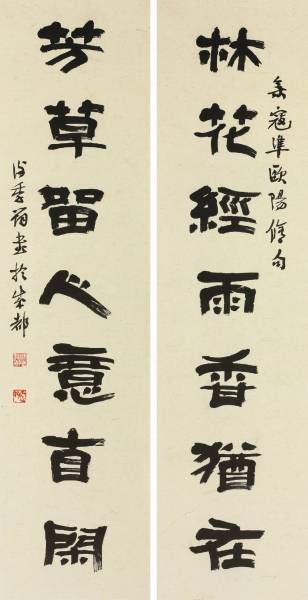 林花經雨香猶在
集寇準歐陽修句
芳草留人意自閑
謝季筠書於成都